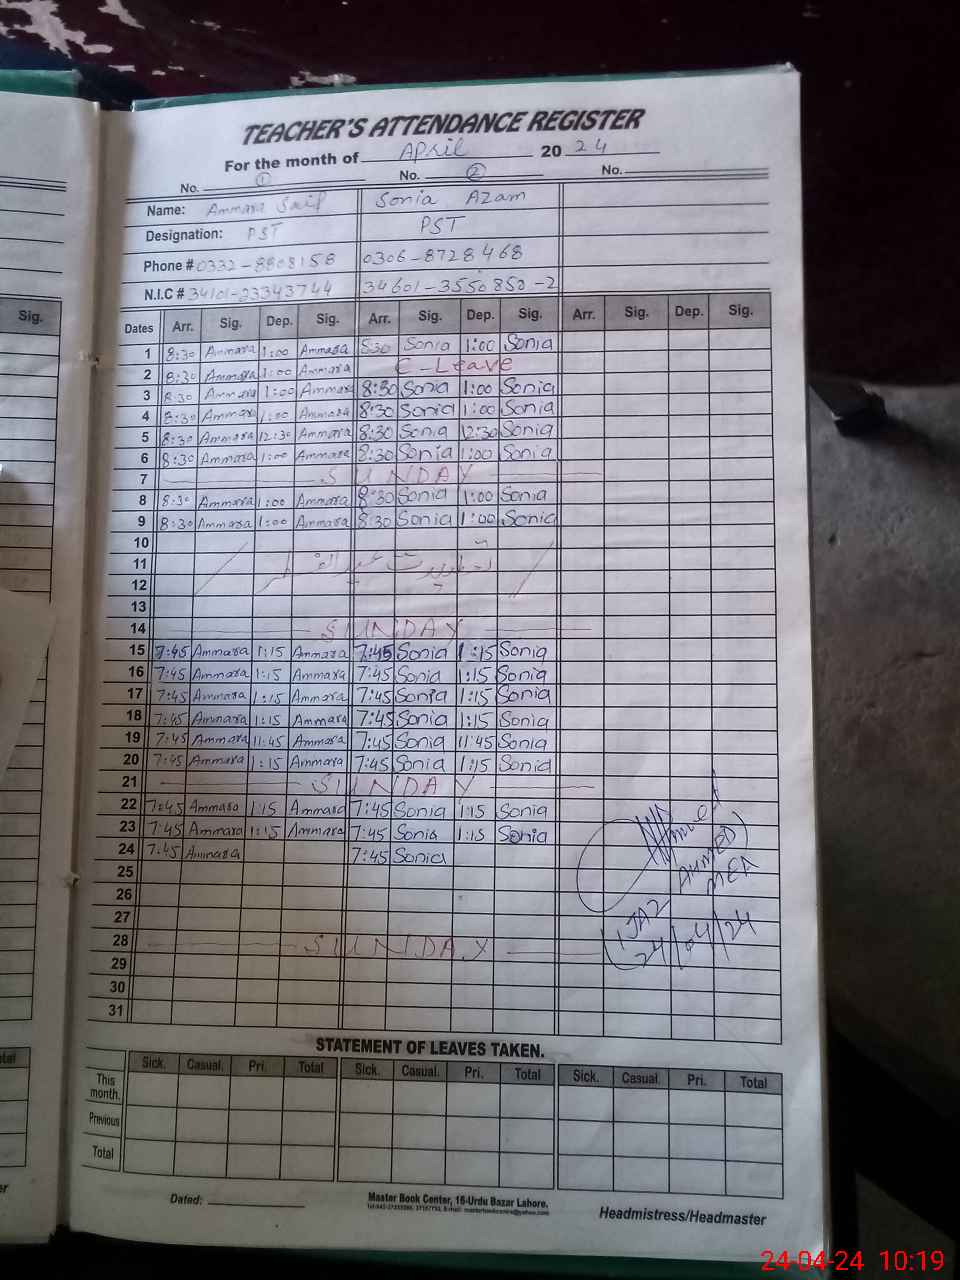 TEACHER'S ATTENDANCE REGISTER
For the month of April 20 24
No. 1 No. 2 No.
Name: Ammara Saif Sonia Azam
Designation: PST PST
Phone # 0332-8808158 0306-8728468
N.I.C # 34101-23343744 34601-3550850-2
Sig. Dates Arr. Sig. Dep. Sig. Arr. Sig. Dep. Sig. Arr. Sig. Dep. Sig.
1 8:30 Ammara 1:00 Ammara 8:30 Sonia 1:00 Sonia
2 8:30 Ammara 1:00 Ammara C-Leave
3 8:30 Ammara 1:00 Ammara 8:30 Sonia 1:00 Sonia
4 8:30 Ammara 1:00 Ammara 8:30 Sonia 1:00 Sonia
5 8:30 Ammara 12:30 Ammara 8:30 Sonia 12:30 Sonia
6 8:30 Ammara 1:00 Ammara 8:30 Sonia 1:00 Sonia
7 SUNDAY
8 8:30 Ammara 1:00 Ammara 8:30 Sonia 1:00 Sonia
9 8:30 Ammara 1:00 Ammara 8:30 Sonia 1:00 Sonia
10
11 تعطیلات عید الفطر
12
13
14 SUNDAY
15 7:45 Ammara 1:15 Ammara 7:45 Sonia 1:15 Sonia
16 7:45 Ammara 1:15 Ammara 7:45 Sonia 1:15 Sonia
17 7:45 Ammara 1:15 Ammara 7:45 Sonia 1:15 Sonia
18 7:45 Ammara 1:15 Ammara 7:45 Sonia 1:15 Sonia
19 7:45 Ammara 11:45 Ammara 7:45 Sonia 11:45 Sonia
20 7:45 Ammara 1:15 Ammara 7:45 Sonia 1:15 Sonia
21 SUNDAY
22 7:45 Ammara 1:15 Ammara 7:45 Sonia 1:15 Sonia
23 7:45 Ammara 1:15 Ammara 7:45 Sonia 1:15 Sonia
24 7:45 Ammara 7:45 Sonia
25
26
27
28 SUNDAY
29
30
31
(IJAZ AHMED)
MEA
24/04/24
STATEMENT OF LEAVES TAKEN.
Sick. Casual. Pri. Total Sick. Casual. Pri. Total Sick. Casual. Pri. Total
This month.
Previous
Total
Dated:
Master Book Center, 16-Urdu Bazar Lahore.
Headmistress/Headmaster
24-04-24 10:19